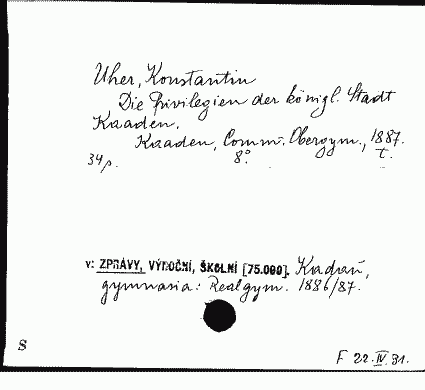 Uher, Konstantin
Die Privilegien der königl. Stadt
Kaaden.
Kaaden, Comm. Obergym., 1887.
34 p. 8°. t.
v: ZPRÁVY, VÝROČNÍ, ŠKOLNÍ [75.000]. Kadaň,
gymnasia: Realgym. 1886/87.
S
F 22.IV.31.